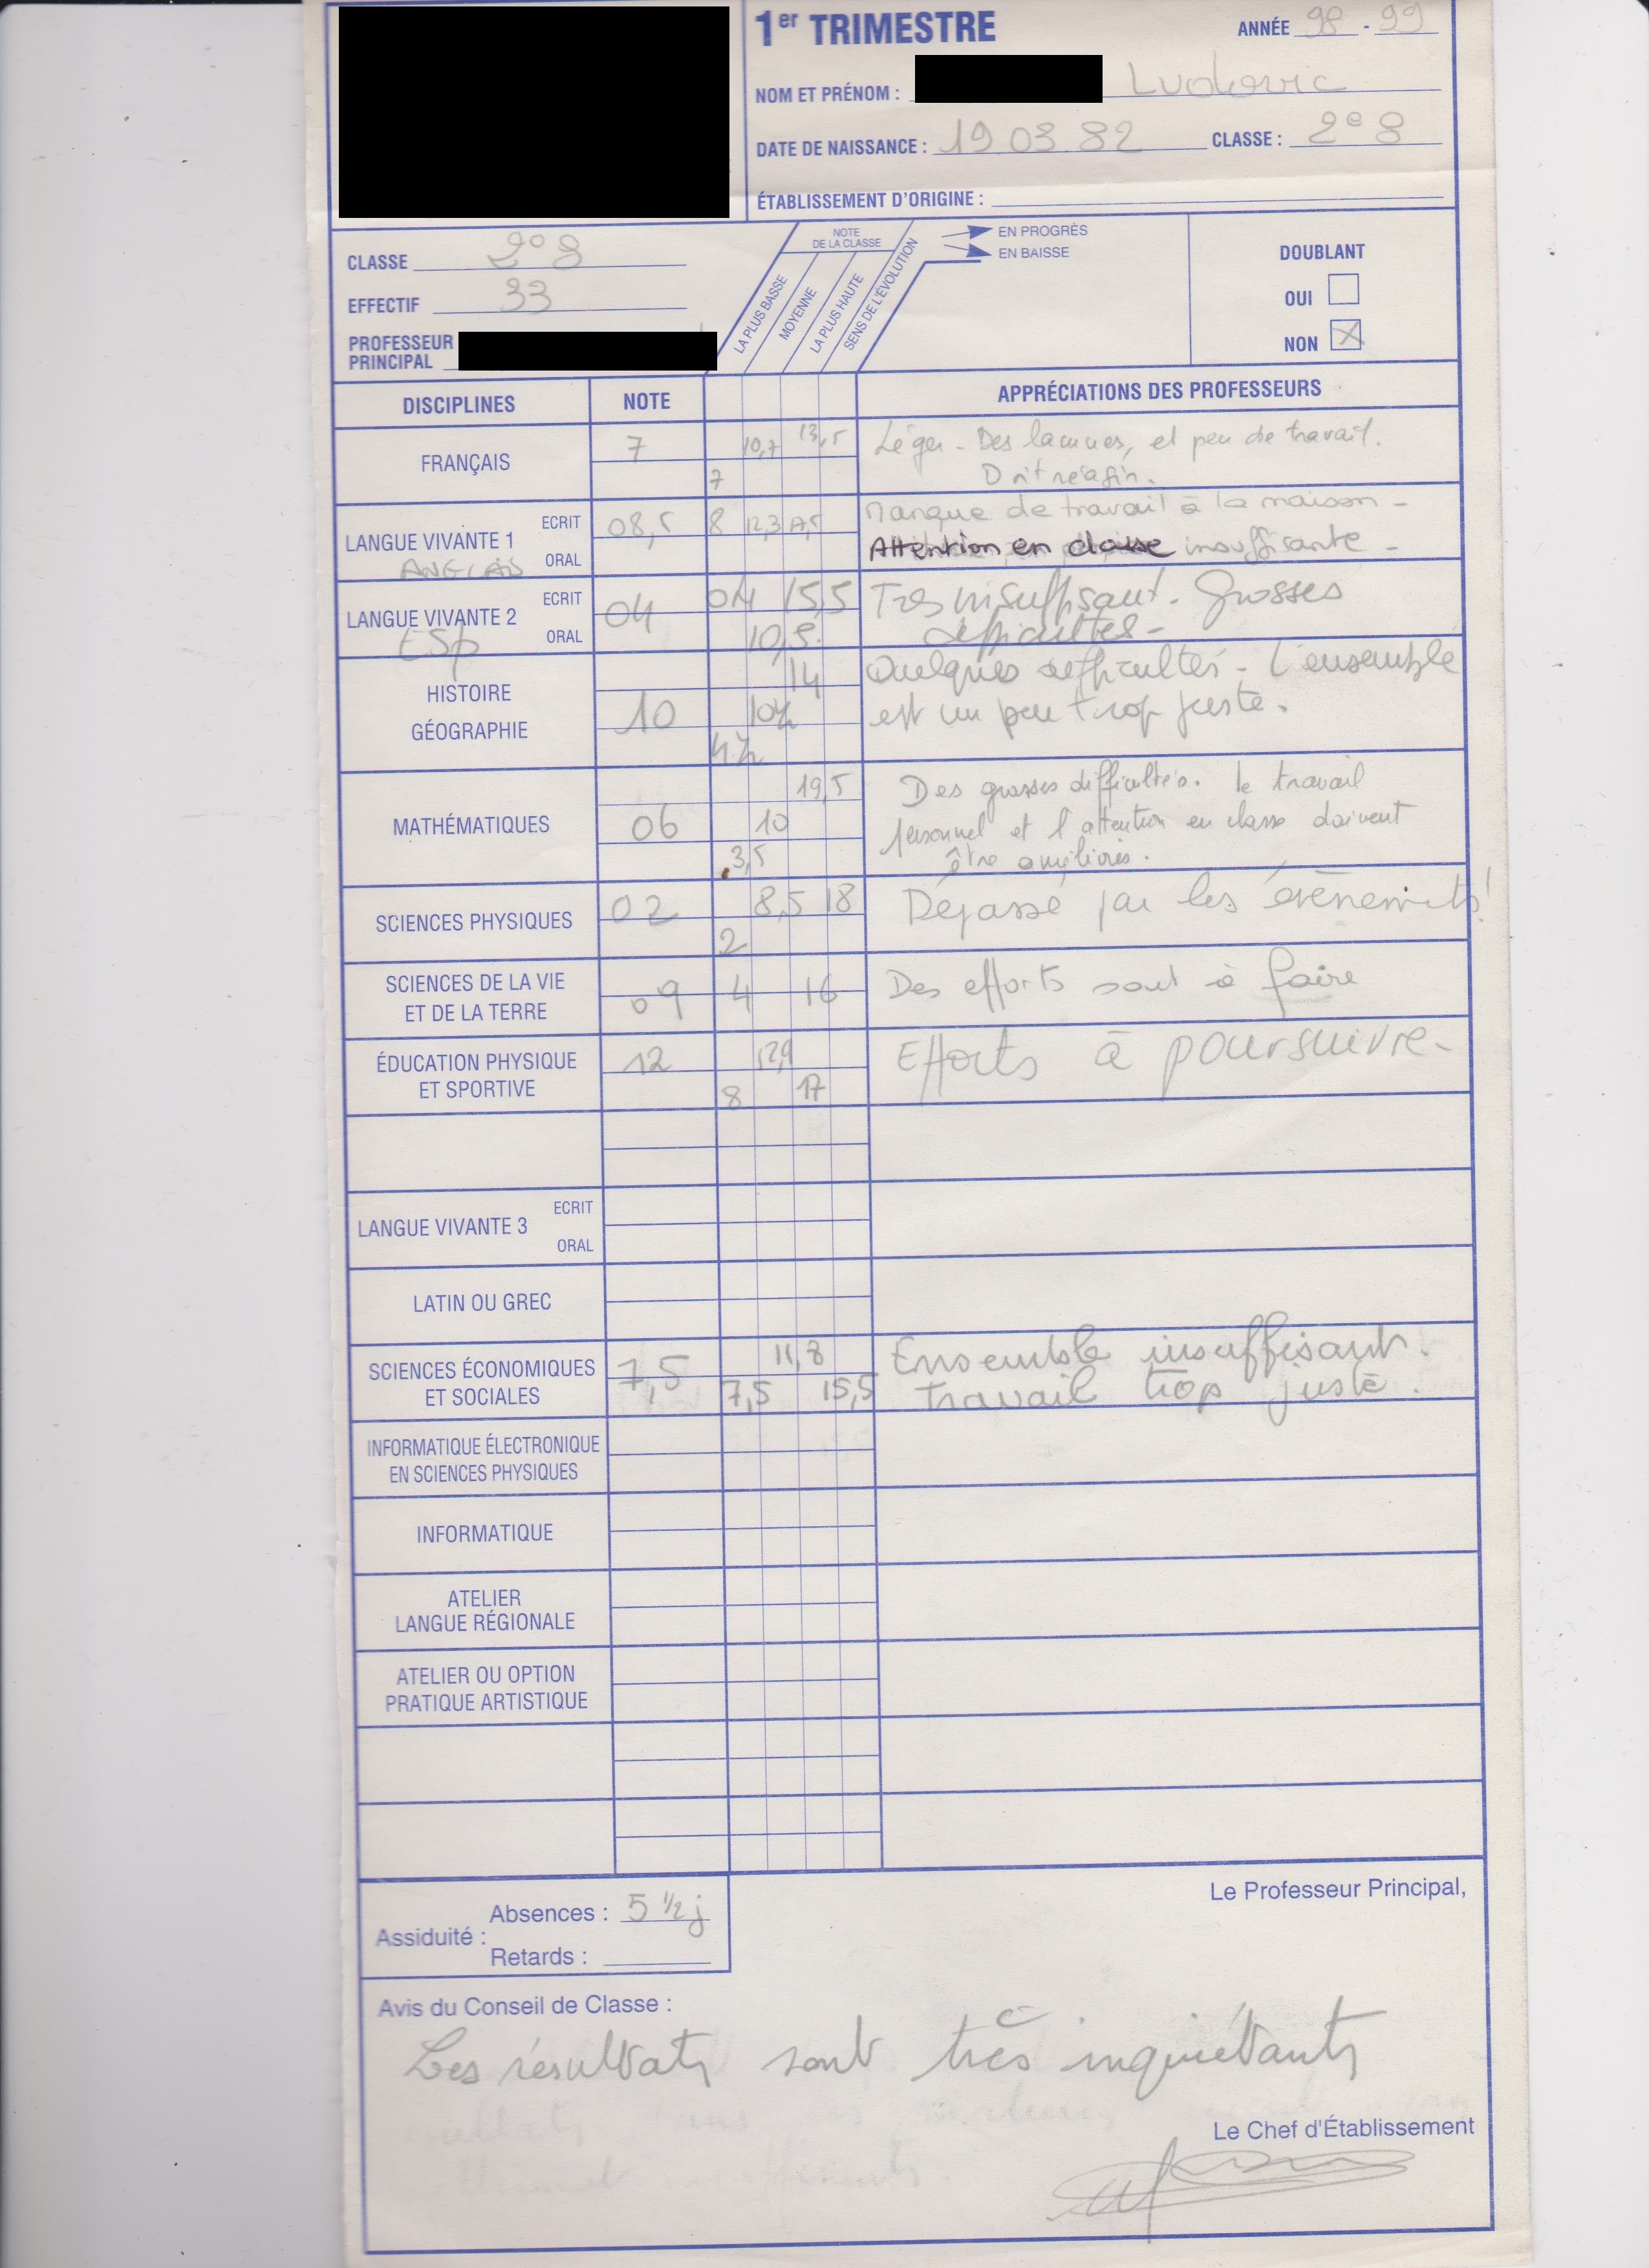 1er TRIMESTRE
ANNÉE 98 - 99
NOM ET PRÉNOM : Ludovic
DATE DE NAISSANCE : 19 03 82 CLASSE : 2e 8
ÉTABLISSEMENT D'ORIGINE :
CLASSE 2° 8
EFFECTIF 33
PROFESSEUR
PRINCIPAL
NOTE
DE LA CLASSE
LA PLUS BASSE
MOYENNE
LA PLUS HAUTE
SENS DE L'ÉVOLUTION
EN PROGRÈS
EN BAISSE
DOUBLANT
OUI
NON X
DISCIPLINES NOTE APPRÉCIATIONS DES PROFESSEURS
FRANÇAIS 7 7 10,7 13,5 Léger - Des lacunes, et peu de travail.
Doit réagir.
LANGUE VIVANTE 1 ECRIT 08,5 8 12,3 17,5 Manque de travail à la maison -
ANGLAIS ORAL Attention en classe insuffisante -
LANGUE VIVANTE 2 ECRIT 04 04 10,5 15,5 Très insuffisant. Grosses
ESP ORAL difficultés -
HISTOIRE
GÉOGRAPHIE 10 14 Quelques difficultés - L'ensemble
est un peu trop juste.
MATHÉMATIQUES 06 3,5 10 19,5 Des grosses difficultés. Le travail
personnel et l'attention en classe doivent
être améliorés.
SCIENCES PHYSIQUES 02 2 8,5 18 Dépassé par les évènements !
SCIENCES DE LA VIE
ET DE LA TERRE 09 4 16 Des efforts sont à faire
ÉDUCATION PHYSIQUE
ET SPORTIVE 12 8 12,9 17 Efforts à poursuivre -
LANGUE VIVANTE 3 ECRIT
ORAL
LATIN OU GREC
SCIENCES ÉCONOMIQUES
ET SOCIALES 7,5 7,5 11,8 15,5 Ensemble insuffisant.
Travail trop juste.
INFORMATIQUE ÉLECTRONIQUE
EN SCIENCES PHYSIQUES
INFORMATIQUE
ATELIER
LANGUE RÉGIONALE
ATELIER OU OPTION
PRATIQUE ARTISTIQUE
Le Professeur Principal,
Assiduité : Absences : 5 ½ j
Retards :
Avis du Conseil de Classe :
Les résultats sont très inquiétants
Le Chef d'Établissement